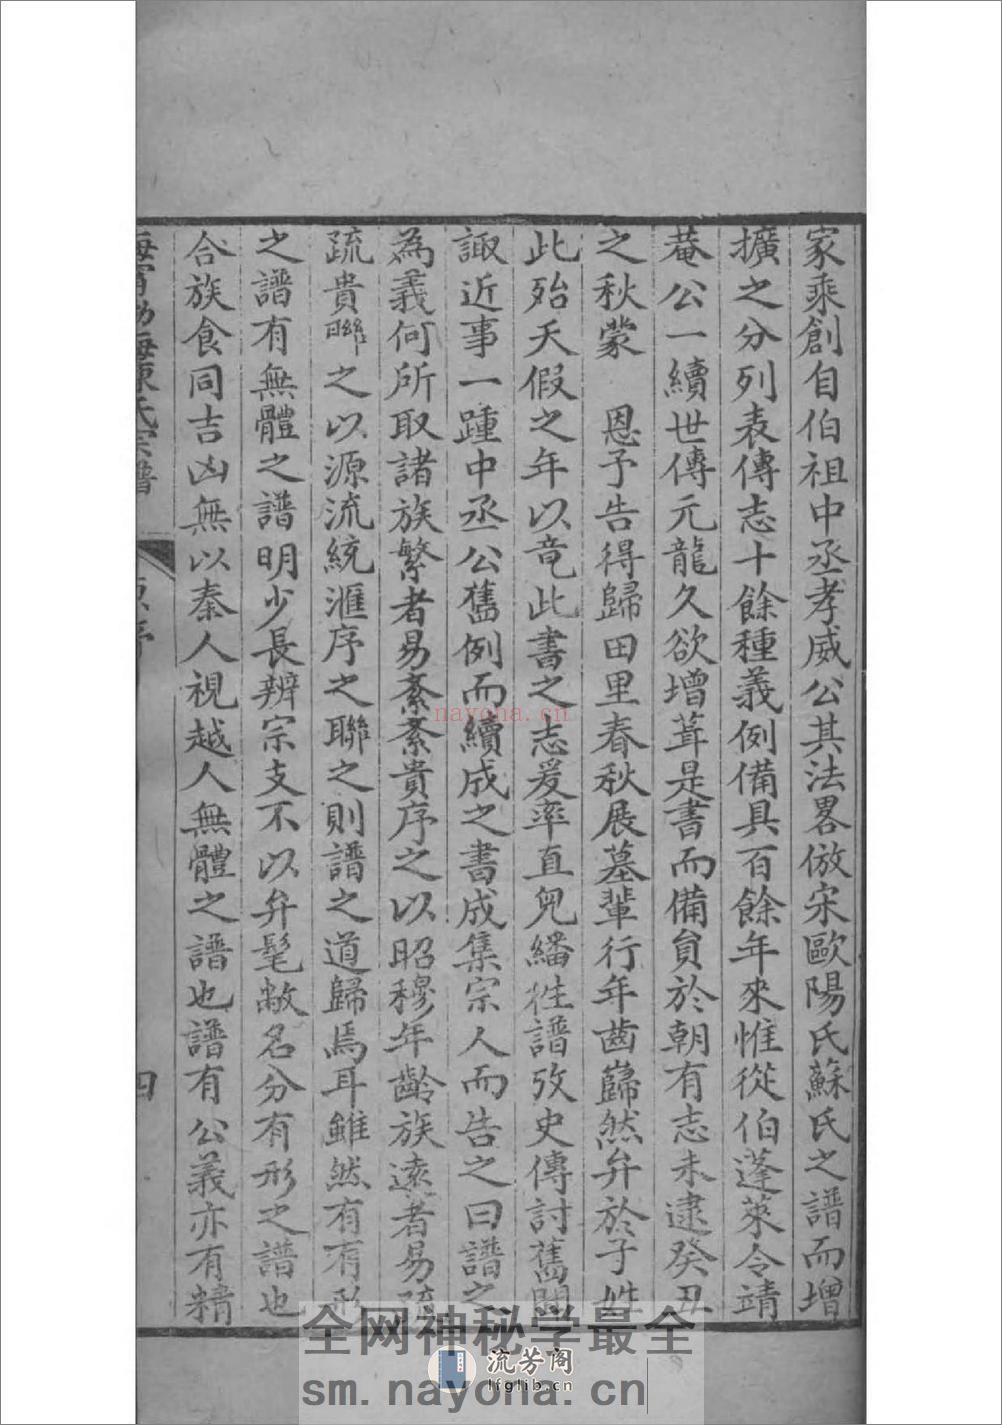 家乘創自伯祖中丞孝威公其法畧倣宋歐陽氏蘇氏之譜而增
擴之分列表傳志十餘種義例備具百餘年來惟從伯蓬萊令靖
菴公一續世傳元龍久欲增葺是書而備員於朝有志未逮癸丑
之秋蒙　恩予告得歸田里春秋展墓輩行年齒巋然弁於子姓
此殆天假之年以竟此書之志爰率直皃繙往譜攷史傳討舊聞
諏近事一踵中丞公舊例而續成之書成集宗人而告之曰譜之
為義何所取諸族繁者易紊紊貴序之以昭穆年齡族遠者易疏
疏貴聯之以源流統滙序之聯之則譜之道歸焉耳雖然有有形
之譜有無體之譜明少長辨宗支不以弁髦敝名分有形之譜也
合族食同吉凶無以秦人視越人無體之譜也譜有公義亦有精
海寧渤海陳氏宗譜
原序
四
nayona.cn
全网神秘学最全
流芳阁
lfglib.cn
sm.nayona.cn